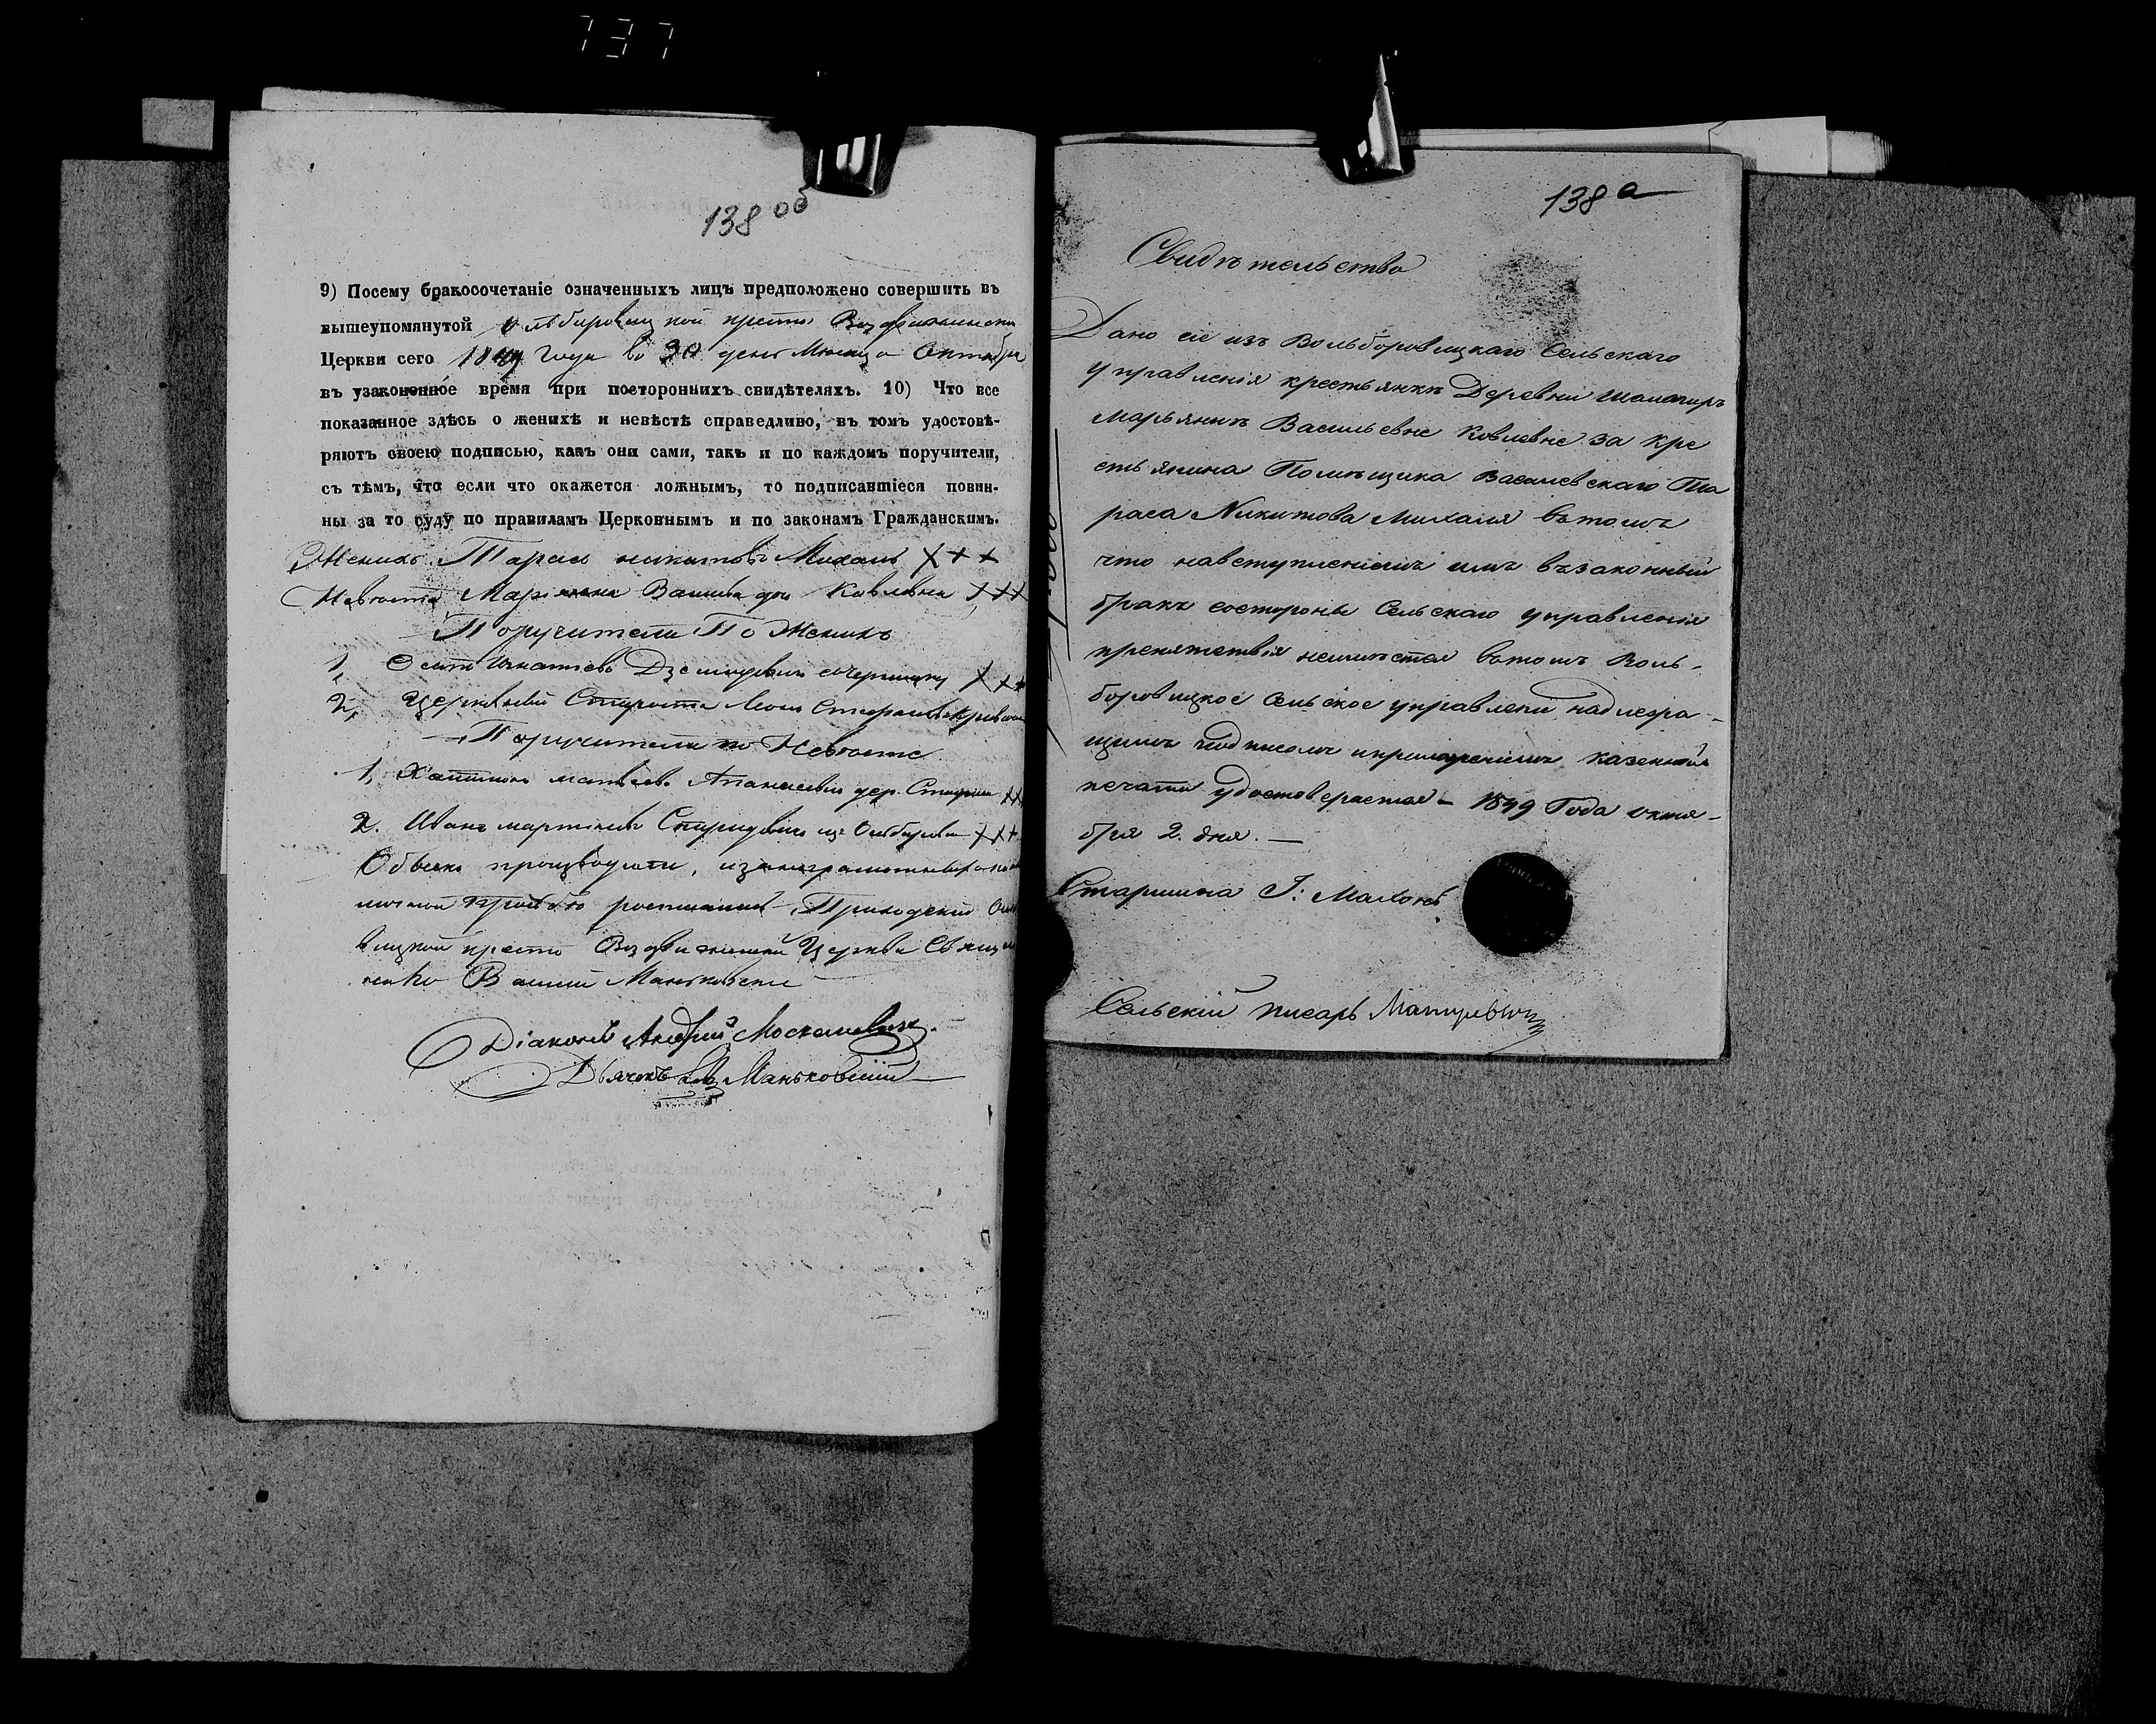 737
138 об
9) Посему бракосочетаніе означенныхъ лицъ предположено совершить въ
вышеупомянутой Ольбировицкой кресто Воздвиженской
Церкви сего 1849 года во 30 день Месяца Октября
въ узаконенное время при постороннихъ свидѣтеляхъ. 10) Что все
показанное здѣсь о женихѣ и невѣстѣ справедливо, въ томъ удостовѣ-
ряютъ своею подписью, какъ они сами, такъ и по каждомъ поручители,
съ тѣмъ, что если что окажется ложнымъ, то подписавшіеся повин-
ны за то суду по правиламъ Церковнымъ и по законамъ Гражданскимъ.
Женихъ Тарасъ никитовъ Михаль ХХХ
Невѣста Маріянна Ковлевна ХХХ
Поручители По Женихѣ
1, Осипъ Игнатіевъ ХХХ
2, Церковный Староста
Поручители по Невѣсте
1, матвѣевъ дер. ХХХ
2. Иванъ мартиновъ Спиридовичъ ХХХ
Обыскъ производили,
Приходскій
вицкой кресто Воздвиженской Церкви Священ
никъ Василій Маньковскій
Діаконъ Андрей Москалевичъ
Дьячекъ Маньковскій
138 а
Свидѣтельство
Дано сіе изъ Вольборовицкаго Сельскаго
управленія крестьянкѣ Деревни
Марьянѣ Васильевне Ковлевне за кре
стьянина Помѣщика Васалевскаго Та
раса Никитова Михаля вътомъ
что навступленіемъ имъ възаконный
бракъ состороны Сельскаго управленія
препятствія неимѣется вътомъ Воль-
боровицкое Сельское управлени надлежа-
щимъ подписомъ иприложеніемъ казенной
печати удостоверяется – 1849 Года октя-
бря 2. дня. —
Старшина І: Махонь
Сельскій писарь Мацулевичъ